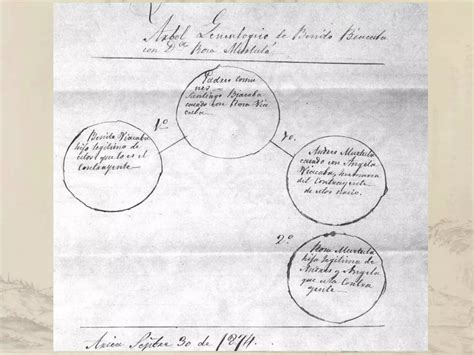 Arbol Genealogico de Benito Biacaba
con D.ª Rosa Murtula
Padres comu
nes
Santiago Biacaba
casado con Rosa Via
cuba.
1.º
Benito Viacaba
hijo legitimo de
estos que lo es el
Contrayente
1.º
Andres Murtula
casado con Angela
Viacaba, hermana
del Contrayente
de estos
2.º
Rosa Murtula
hija legitima de
Andres y Angela
que es la Contra
yente
Arica Septbre 30 de 1874.